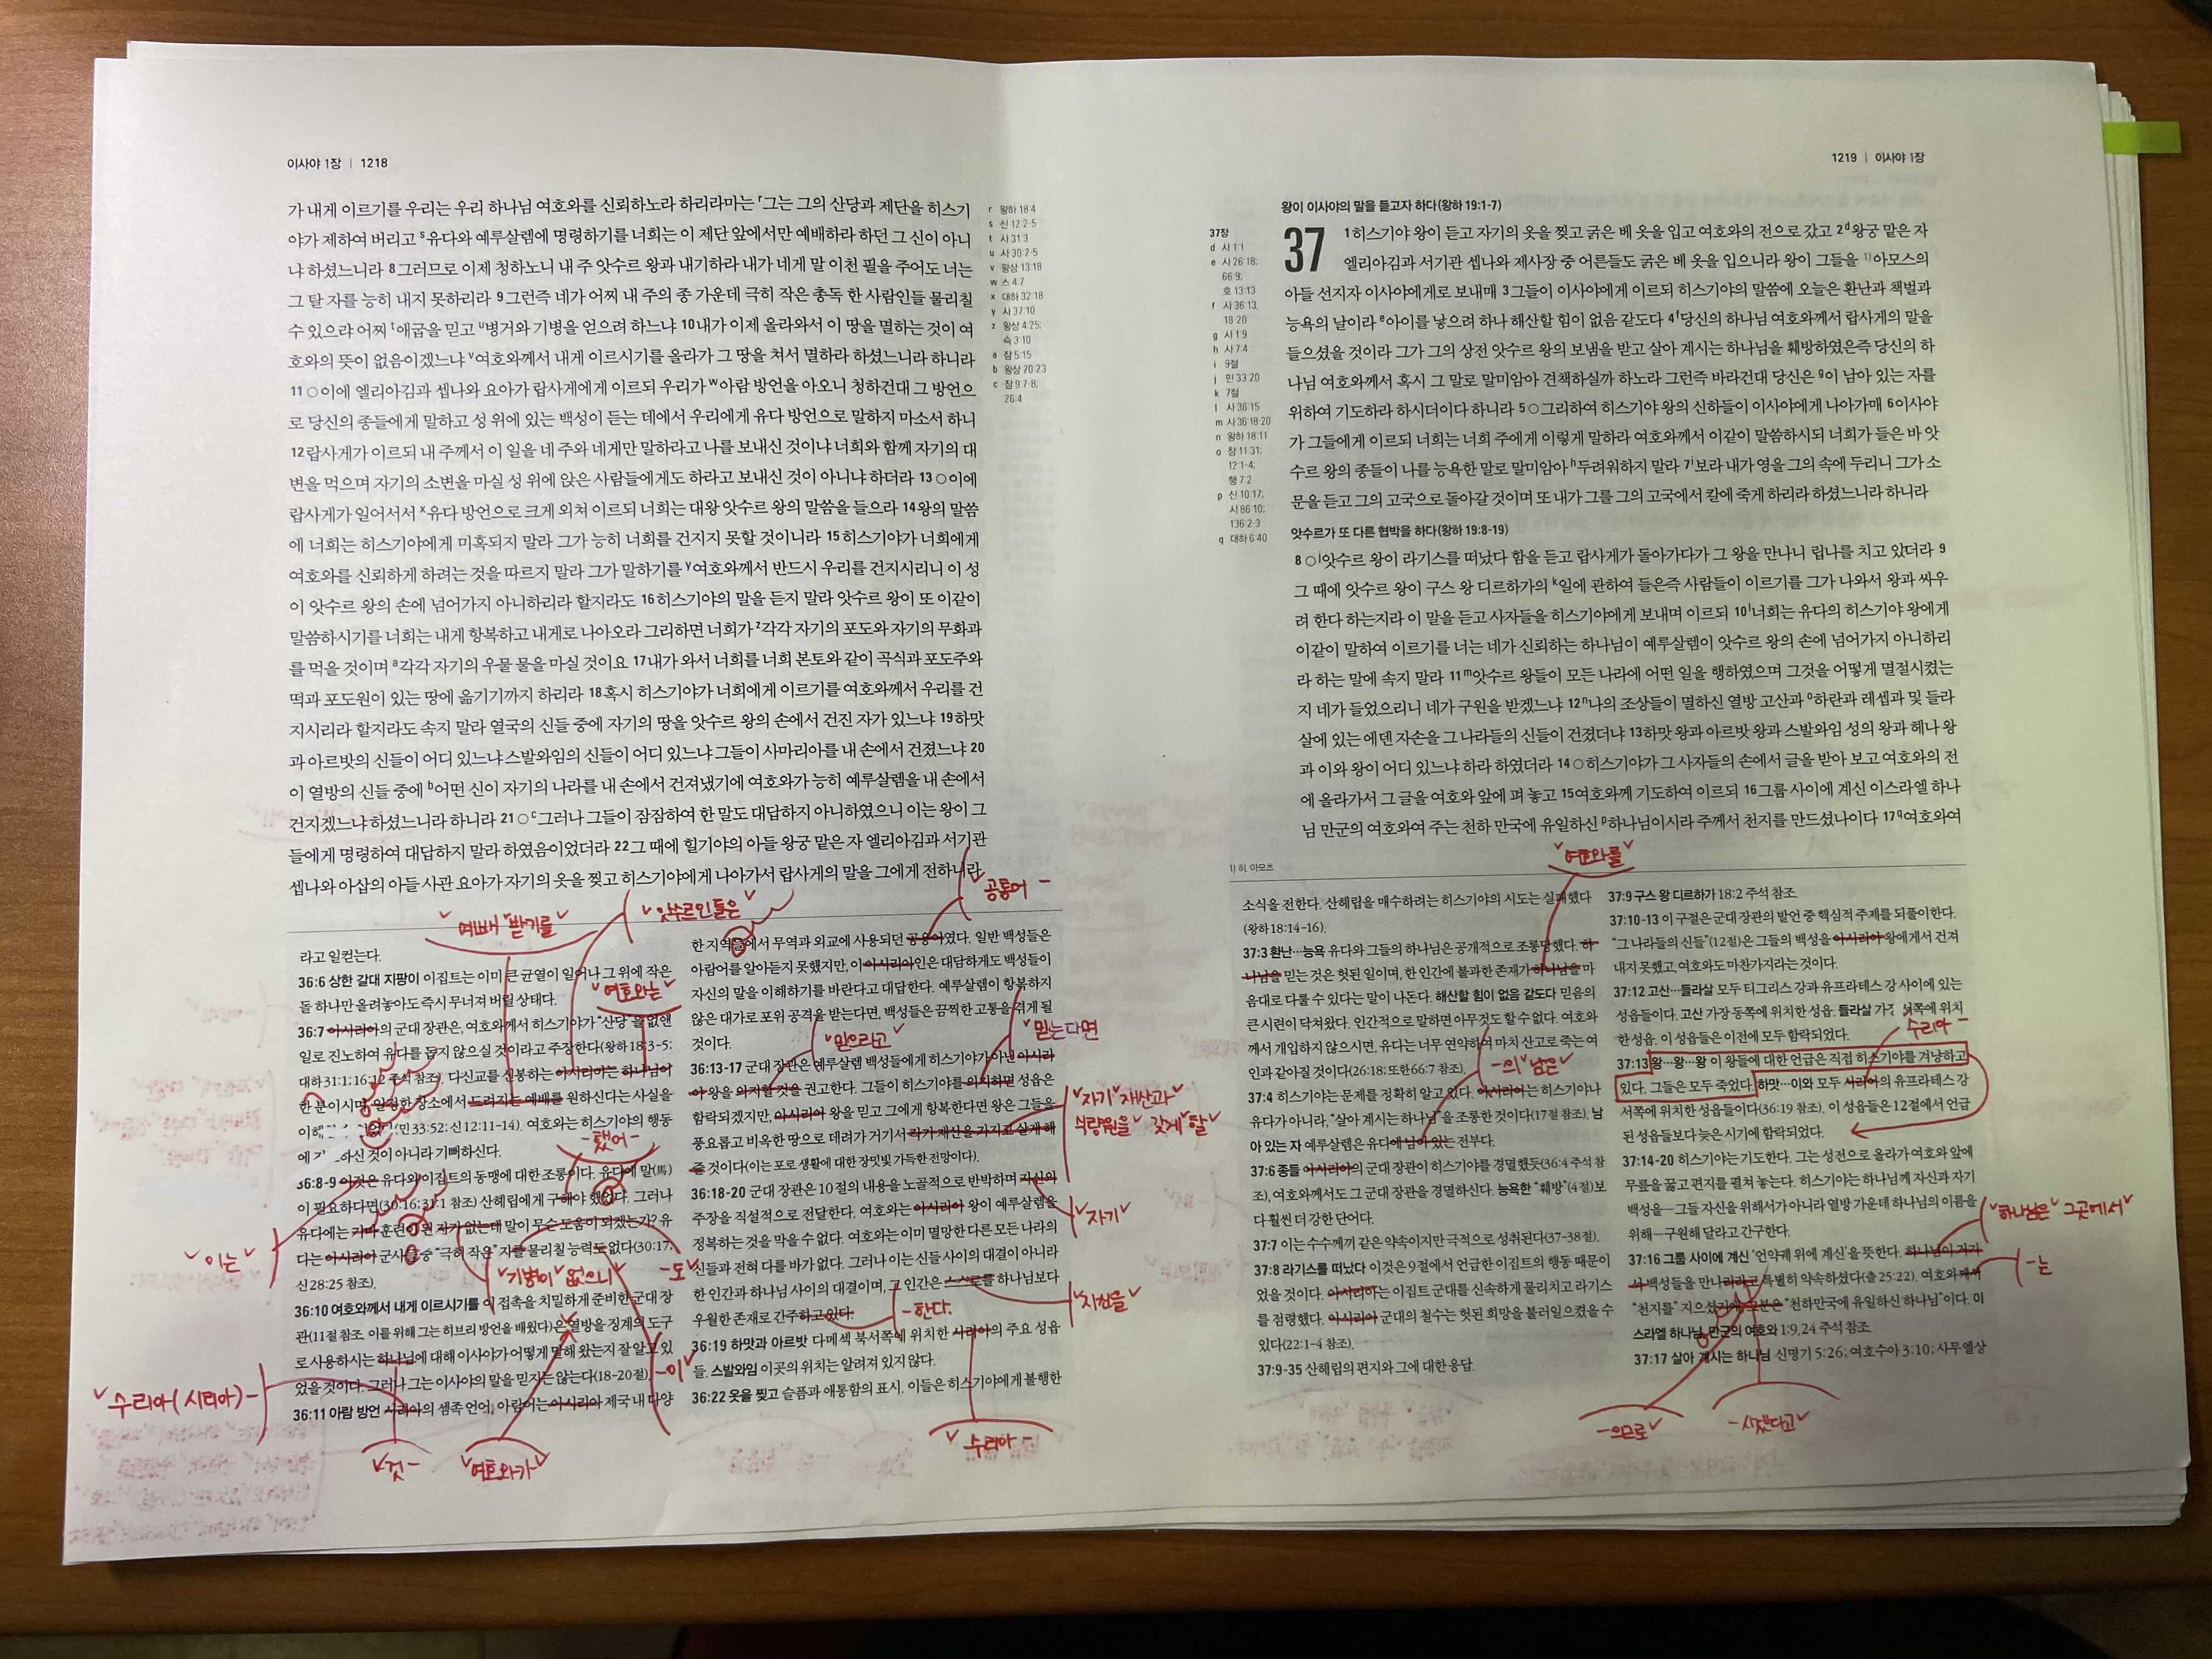 이사야 1장 | 1218
가 내게 이르기를 우리는 우리 하나님 여호와를 신뢰하노라 하리라마는 r그는 그의 산당과 제단을 히스기
야가 제하여 버리고 s유다와 예루살렘에 명령하기를 너희는 이 제단 앞에서만 예배하라 하던 그 신이 아니
냐 하셨느니라 8그러므로 이제 청하노니 내 주 앗수르 왕과 내기하라 내가 네게 말 이천 필을 주어도 너는
그 탈 자를 능히 내지 못하리라 9그런즉 네가 어찌 내 주의 종 가운데 극히 작은 총독 한 사람인들 물리칠
수 있으랴 어찌 t애굽을 믿고 u병거와 기병을 얻으려 하느냐 10내가 이제 올라와서 이 땅을 멸하는 것이 여
호와의 뜻이 없음이겠느냐 v여호와께서 내게 이르시기를 올라가 그 땅을 쳐서 멸하라 하셨느니라 하니라
11 ○이에 엘리아김과 셉나와 요아가 랍사게에게 이르되 우리가 w아람 방언을 아오니 청하건대 그 방언으
로 당신의 종들에게 말하고 성 위에 있는 백성이 듣는 데에서 우리에게 유다 방언으로 말하지 마소서 하니
12랍사게가 이르되 내 주께서 이 일을 네 주와 네게만 말하라고 나를 보내신 것이냐 너희와 함께 자기의 대
변을 먹으며 자기의 소변을 마실 성 위에 앉은 사람들에게도 하라고 보내신 것이 아니냐 하더라 13 ○이에
랍사게가 일어서서 x유다 방언으로 크게 외쳐 이르되 너희는 대왕 앗수르 왕의 말씀을 들으라 14왕의 말씀
에 너희는 히스기야에게 미혹되지 말라 그가 능히 너희를 건지지 못할 것이니라 15히스기야가 너희에게
여호와를 신뢰하게 하려는 것을 따르지 말라 그가 말하기를 y여호와께서 반드시 우리를 건지시리니 이 성
이 앗수르 왕의 손에 넘어가지 아니하리라 할지라도 16히스기야의 말을 듣지 말라 앗수르 왕이 또 이같이
말씀하시기를 너희는 내게 항복하고 내게로 나아오라 그리하면 너희가 z각각 자기의 포도와 자기의 무화과
를 먹을 것이며 a각각 자기의 우물 물을 마실 것이요 17내가 와서 너희를 너희 본토와 같이 곡식과 포도주와
떡과 포도원이 있는 땅에 옮기기까지 하리라 18혹시 히스기야가 너희에게 이르기를 여호와께서 우리를 건
지시리라 할지라도 속지 말라 열국의 신들 중에 자기의 땅을 앗수르 왕의 손에서 건진 자가 있느냐 19하맛
과 아르밧의 신들이 어디 있느냐 스발와임의 신들이 어디 있느냐 그들이 사마리아를 내 손에서 건졌느냐 20
이 열방의 신들 중에 b어떤 신이 자기의 나라를 내 손에서 건져냈기에 여호와가 능히 예루살렘을 내 손에서
건지겠느냐 하셨느니라 하니라 21 ○c그러나 그들이 잠잠하여 한 말도 대답하지 아니하였으니 이는 왕이 그
들에게 명령하여 대답하지 말라 하였음이었더라 22그 때에 힐기야의 아들 왕궁 맡은 자 엘리아김과 서기관
셉나와 아삽의 아들 사관 요아가 자기의 옷을 찢고 히스기야에게 나아가서 랍사게의 말을 그에게 전하니라
r 왕하 18:4
s 신 12:2-5
t 사 31:3
u 사 30:2-5
v 왕상 13:18
w 스 4:7
x 대하 32:18
y 사 37:10
z 왕상 4:25;
슥 3:10
a 잠 5:15
b 왕상 20:23
c 잠 9:7-8;
26:4
예배 받기를
앗수르인들은
공통어
라고 일컫는다.
36:6 상한 갈대 지팡이 이집트는 이미 큰 균열이 일어나 그 위에 작은
돌 하나만 올려놓아도 즉시 무너져 버릴 상태다.
여호와는
36:7 아시리아의 군대 장관은, 여호와께서 히스기야가 “산당”을 없앤
일로 진노하여 유다를 돕지 않으실 것이라고 주장한다(왕하 18:3-5;
대하 31:1; 16:12 주석 참조). 다신교를 신봉하는 아시리아는 하나님이
한 분이시며 일정한 장소에서 드려지는 예배를 원하신다는 사실을
이해 (민 33:52; 신 12:11-14). 여호와는 히스기야의 행동
에 하신 것이 아니라 기뻐하신다.
했어
36:8-9 이것은 유다와 이집트의 동맹에 대한 조롱이다. 유다에 말(馬)
이 필요하다면(30:16; 31:1 참조) 산헤립에게 구해야 했었다. 그러나
유다에는 기마 훈련이 된 자가 없는데 말이 무슨 도움이 되겠는가? 유
다는 아시리아 군사들 중 “극히 작은” 자를 물리칠 능력도 없다(30:17;
신 28:25 참조).
이는
기병이 없으니
도
36:10 여호와께서 내게 이르시기를 이 접촉을 치밀하게 준비한 군대 장
관(11절 참조. 이를 위해 그는 히브리 방언을 배웠다)은 열방을 징계의 도구
로 사용하시는 하나님에 대해 이사야가 어떻게 말해 왔는지 잘 알고 있
었을 것이다. 그러나 그는 이사야의 말을 믿지는 않는다(18-20절).
이
36:11 아람 방언 시리아의 셈족 언어. 아람어는 아시리아 제국 내 다양
수리아(시리아)
것
여호와가
한 지역들에서 무역과 외교에 사용되던 공용어였다. 일반 백성들은
아람어를 알아듣지 못했지만, 이 아시리아인은 대담하게도 백성들이
자신의 말을 이해하기를 바란다고 대답한다. 예루살렘이 항복하지
않은 대가로 포위 공격을 받는다면, 백성들은 끔찍한 고통을 겪게 될
것이다.
믿으라고
믿는다면
36:13-17 군대 장관은 예루살렘 백성들에게 히스기야가 아닌 아시리
아 왕을 의지할 것을 권고한다. 그들이 히스기야를 의지하면 성읍은
함락되겠지만, 아시리아 왕을 믿고 그에게 항복한다면 왕은 그들을
풍요롭고 비옥한 땅으로 데려가 거기서 작가 재산을 가지고 살게 해
줄 것이다(이는 포로 생활에 대한 장밋빛 가득한 전망이다).
자기 재산과
식량원을 갖게 할
36:18-20 군대 장관은 10절의 내용을 노골적으로 반박하며 자신의
주장을 직설적으로 전달한다. 여호와는 아시리아 왕이 예루살렘을
정복하는 것을 막을 수 없다. 여호와는 이미 멸망한 다른 모든 나라의
신들과 전혀 다를 바가 없다. 그러나 이는 신들 사이의 대결이 아니라
한 인간과 하나님 사이의 대결이며, 그 인간은 스스로를 하나님보다
우월한 존재로 간주하고 있다.
자기
자신을
한다.
36:19 하맛과 아르밧 다메섹 북서쪽에 위치한 시리아의 주요 성읍
들. 스발와임 이곳의 위치는 알려져 있지 않다.
36:22 옷을 찢고 슬픔과 애통함의 표시. 이들은 히스기야에게 불행한
수리아
1219 | 이사야 1장
왕이 이사야의 말을 듣고자 하다(왕하 19:1-7)
37 1히스기야 왕이 듣고 자기의 옷을 찢고 굵은 베 옷을 입고 여호와의 전으로 갔고 2d왕궁 맡은 자
엘리아김과 서기관 셉나와 제사장 중 어른들도 굵은 베 옷을 입으니라 왕이 그들을 1)아모스의
아들 선지자 이사야에게로 보내매 3그들이 이사야에게 이르되 히스기야의 말씀에 오늘은 환난과 책벌과
능욕의 날이라 e아이를 낳으려 하나 해산할 힘이 없음 같도다 4f당신의 하나님 여호와께서 랍사게의 말을
들으셨을 것이라 그가 그의 상전 앗수르 왕의 보냄을 받고 살아 계시는 하나님을 훼방하였은즉 당신의 하
나님 여호와께서 혹시 그 말로 말미암아 견책하실까 하노라 그런즉 바라건대 당신은 g이 남아 있는 자를
위하여 기도하라 하시더이다 하니라 5 ○그리하여 히스기야 왕의 신하들이 이사야에게 나아가매 6이사야
가 그들에게 이르되 너희는 너희 주에게 이렇게 말하라 여호와께서 이같이 말씀하시되 너희가 들은 바 앗
수르 왕의 종들이 나를 능욕한 말로 말미암아 h두려워하지 말라 7i보라 내가 영을 그의 속에 두리니 그가 소
문을 듣고 그의 고국으로 돌아갈 것이며 또 내가 그를 그의 고국에서 칼에 죽게 하리라 하셨느니라 하니라
앗수르가 또 다른 협박을 하다(왕하 19:8-19)
8 ○j앗수르 왕이 라기스를 떠났다 함을 듣고 랍사게가 돌아가다가 그 왕을 만나니 립나를 치고 있더라 9
그 때에 앗수르 왕이 구스 왕 디르하가의 k일에 관하여 들은즉 사람들이 이르기를 그가 나와서 왕과 싸우
려 한다 하는지라 이 말을 듣고 사자들을 히스기야에게 보내며 이르되 10l너희는 유다의 히스기야 왕에게
이같이 말하여 이르기를 너는 네가 신뢰하는 하나님이 예루살렘이 앗수르 왕의 손에 넘어가지 아니하리
라 하는 말에 속지 말라 11m앗수르 왕들이 모든 나라에 어떤 일을 행하였으며 그것을 어떻게 멸절시켰는
지 네가 들었으리니 네가 구원을 받겠느냐 12n나의 조상들이 멸하신 열방 고산과 o하란과 레셉과 및 들라
살에 있는 에덴 자손을 그 나라들의 신들이 건졌더냐 13하맛 왕과 아르밧 왕과 스발와임 성의 왕과 헤나 왕
과 이와 왕이 어디 있느냐 하라 하였더라 14 ○히스기야가 그 사자들의 손에서 글을 받아 보고 여호와의 전
에 올라가서 그 글을 여호와 앞에 펴 놓고 15여호와께 기도하여 이르되 16그룹 사이에 계신 이스라엘 하나
님 만군의 여호와여 주는 천하 만국에 유일하신 p하나님이시라 주께서 천지를 만드셨나이다 17q여호와여
37장
d 사 1:1
e 사 26:18;
66:9;
호 13:13
f 사 36:13,
18-20
g 사 1:9
h 사 7:4
i 9절
j 민 33:20
k 7절
l 사 36:15
m 사 36:18-20
n 왕하 18:11
o 창 11:31;
12:1-4;
행 7:2
p 신 10:17;
시 86:10;
136:2-3
q 대하 6:40
1) 히, 아모츠
여호와를
소식을 전한다. 산헤립을 매수하려는 히스기야의 시도는 실패했다
(왕하 18:14-16).
37:3 환난…능욕 유다와 그들의 하나님은 공개적으로 조롱당했다. 하
나님을 믿는 것은 헛된 일이며, 한 인간에 불과한 존재가 하나님을 마
음대로 다룰 수 있다는 말이 나돈다. 해산할 힘이 없음 같도다 믿음의
큰 시련이 닥쳐왔다. 인간적으로 말하면 아무것도 할 수 없다. 여호와
께서 개입하지 않으시면, 유다는 너무 연약하여 마치 산고로 죽는 여
인과 같아질 것이다(26:18; 또한 66:7 참조).
의 남은
37:4 히스기야는 문제를 정확히 알고 있다. 아시리아는 히스기야나
유다가 아니라, “살아 계시는 하나님”을 조롱한 것이다(17절 참조). 남
아 있는 자 예루살렘은 유다에 남아 있는 전부다.
37:6 종들 아시리아의 군대 장관이 히스기야를 경멸했듯(36:4 주석 참
조), 여호와께서도 그 군대 장관을 경멸하신다. 능욕한 “훼방”(4절)보
다 훨씬 더 강한 단어다.
37:7 이는 수수께끼 같은 약속이지만 극적으로 성취된다(37-38절).
37:8 라기스를 떠났다 이것은 9절에서 언급한 이집트의 행동 때문이
었을 것이다. 아시리아는 이집트 군대를 신속하게 물리치고 라기스
를 점령했다. 아시리아 군대의 철수는 헛된 희망을 불러일으켰을 수
있다(22:1-4 참조).
37:9-35 산헤립의 편지와 그에 대한 응답.
37:9 구스 왕 디르하가 18:2 주석 참조.
37:10-13 이 구절은 군대 장관의 발언 중 핵심적 주제를 되풀이한다.
“그 나라들의 신들”(12절)은 그들의 백성을 아시리아 왕에게서 건져
내지 못했고, 여호와도 마찬가지라는 것이다.
37:12 고산…들라살 모두 티그리스 강과 유프라테스 강 사이에 있는
성읍들이다. 고산 가장 동쪽에 위치한 성읍. 들라살 가장 서쪽에 위치
한 성읍. 이 성읍들은 이전에 모두 함락되었다.
수리아
37:13 왕…왕…왕 이 왕들에 대한 언급은 직접 히스기야를 겨냥하고
있다. 그들은 모두 죽었다. 하맛…이와 모두 시리아의 유프라테스 강
서쪽에 위치한 성읍들이다(36:19 참조). 이 성읍들은 12절에서 언급
된 성읍들보다 늦은 시기에 함락되었다.
37:14-20 히스기야는 기도한다. 그는 성전으로 올라가 여호와 앞에
무릎을 꿇고 편지를 펼쳐 놓는다. 히스기야는 하나님께 자신과 자기
백성을—그들 자신을 위해서가 아니라 열방 가운데 하나님의 이름을
위해—구원해 달라고 간구한다.
하나님은 그곳에서
37:16 그룹 사이에 계신 ‘언약궤 위에 계신’을 뜻한다. 하나님이 거기
서 백성들을 만나리라고 특별히 약속하셨다(출 25:22). 여호와께서
“천지를” 지으셨기에 그분은 “천하만국에 유일하신 하나님”이다. 이
스라엘 하나님, 만군의 여호와 1:9, 24 주석 참조.
는
37:17 살아 계시는 하나님 신명기 5:26; 여호수아 3:10; 사무엘상
으므로
시겠다고